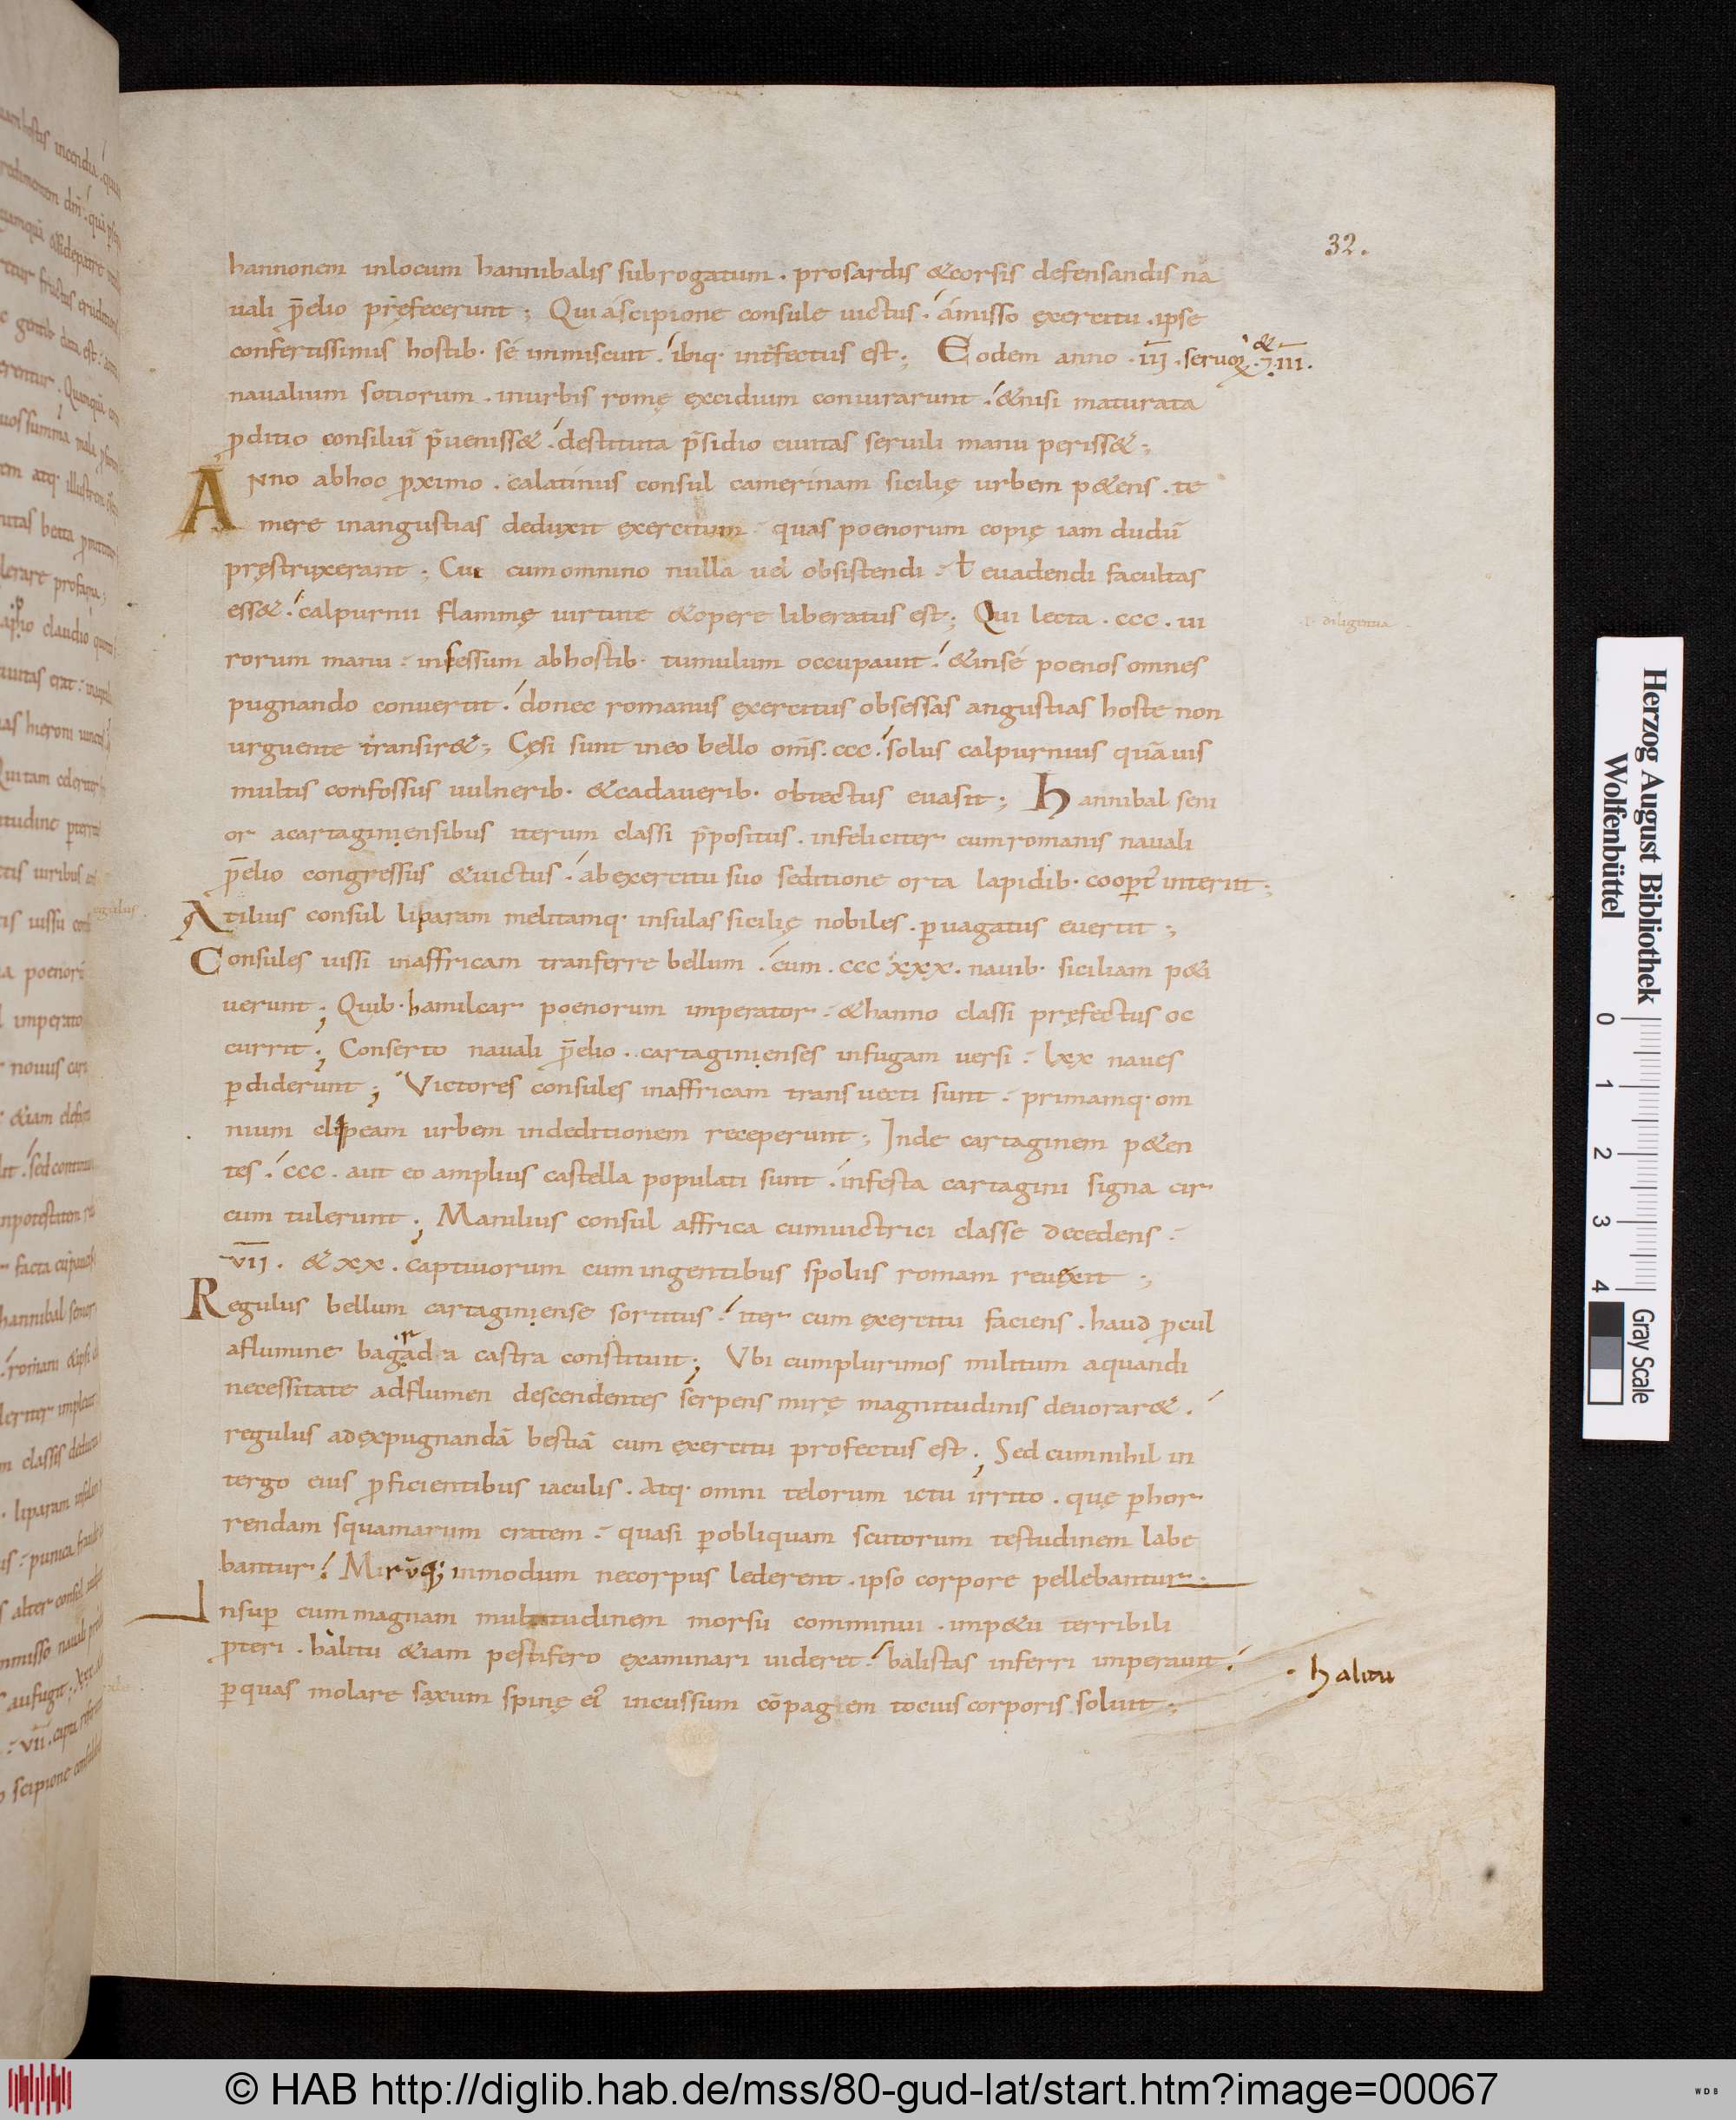 32.
hannonem inlocum hannibalis subrogatum . prosardis &corsis defensandis na
uali p̄elio pręfecerunt ; Qui ascipione consule uictus . amisso ęxercitu . ipse
confertissimis hostib· sé inmiscuit . ibiq· int̄fectus est ; Eodem anno . iīī . seruoꝝ . & ⁊ . iīī .
naualium sotiorum . inurbis romę excidium coniurarunt . &nisi maturata
ꝓditio consiliū p̄uenisset . destituta p̄sidio ciuitas seruili manu periss& ;
Anno abhoc ꝓximo . calatinus consul camerinam sicilię urbem p&ens . te
mere inangustias deduxit ęxercitum quas poenorum copię iam dudū
pręstruxerant ; Cui cumomnino nulla uel obsistendi . ł euadendi facultas
ess& . calpurnii flammę uirtute &opere liberatus est ; Qui lecta . ccc . ui
rorum manu . insessum abhostib· tumulum occupauit . &insé poenos omnes
pugnando conuertit . donec romanus ęxercitus obsessas angustias hoste non
urguente transir& ; Cęsi sunt ineo bello om̄s . ccc . solus calpurnius quāuis
multis confossus uulnerib· &cadauerib· obtectus euasit ; Hannibal seni
or acartaginiensibus iterum classi p̄positus . infeliciter cumromanis nauali
p̄elio congressus &uictus . abexercitu suo seditione orta lapidib· cooꝑt' interiit ;
Atilius consul liparam melitamq· insulas sicilię nobiles . ꝑuagatus euertit ;
Consules iussi inaffricam tranferre bellum . cum . ccc xxx . nauib· siciliam p&i
uerunt ; Quib· hamilcar poenorum imperator . &hanno classi pręfectus oc
currit ; Conserto nauali p̄elio . cartaginienses infugam uersi . lxx naues
ꝑdiderunt ; Victores consules inaffricam transuecti sunt . primamq· om
nium clipeam urbem indeditionem receperunt ; Inde cartaginem p&en
tes . ccc . aut eo amplius castella populati sunt . infesta cartagini signa cir
cum tulerunt ; Manlius consul affrica cumuictrici classe decedens .
v̄īī . & xx . captiuorum cumingentibus spoliis romam reuęxit ;
Regulus bellum cartaginiense sortitus . iter cum ęxercitu faciens . haud ꝓcul
aflumine bagrada castra constituit ; Vbi cumplurimos militum aquandi
necessitate adflumen descendentes serpens mirę magnitudinis deuorar& .
regulus adęxpugnandā bestiā cum ęxercitu profectus est . Sed cumnihil in
tergo eius ꝓficientibus iaculis . atq· omni telorum ictu irrito . quę ꝑhor
rendam squamarum cratem . quasi ꝑobliquam scutorum testudinem labe
bantur . Mirūq; inmodum necorpus lederent . ipso corpore pellebantur .
Insuꝑ cummagnam multitudinem morsu comminui . imp&u terribili
ꝓteri . balitu &iam pestifero examinari uideret . balistas inferri imperauit .
ꝑquas molare saxum spinę ei' incussum cōpagem tocius corporis soluit ;
ł diligentia
. halitu
Herzog August Bibliothek
Wolfenbüttel
0 1 2 3 4
Gray Scale
© HAB http://diglib.hab.de/mss/80-gud-lat/start.htm?image=00067
WDB